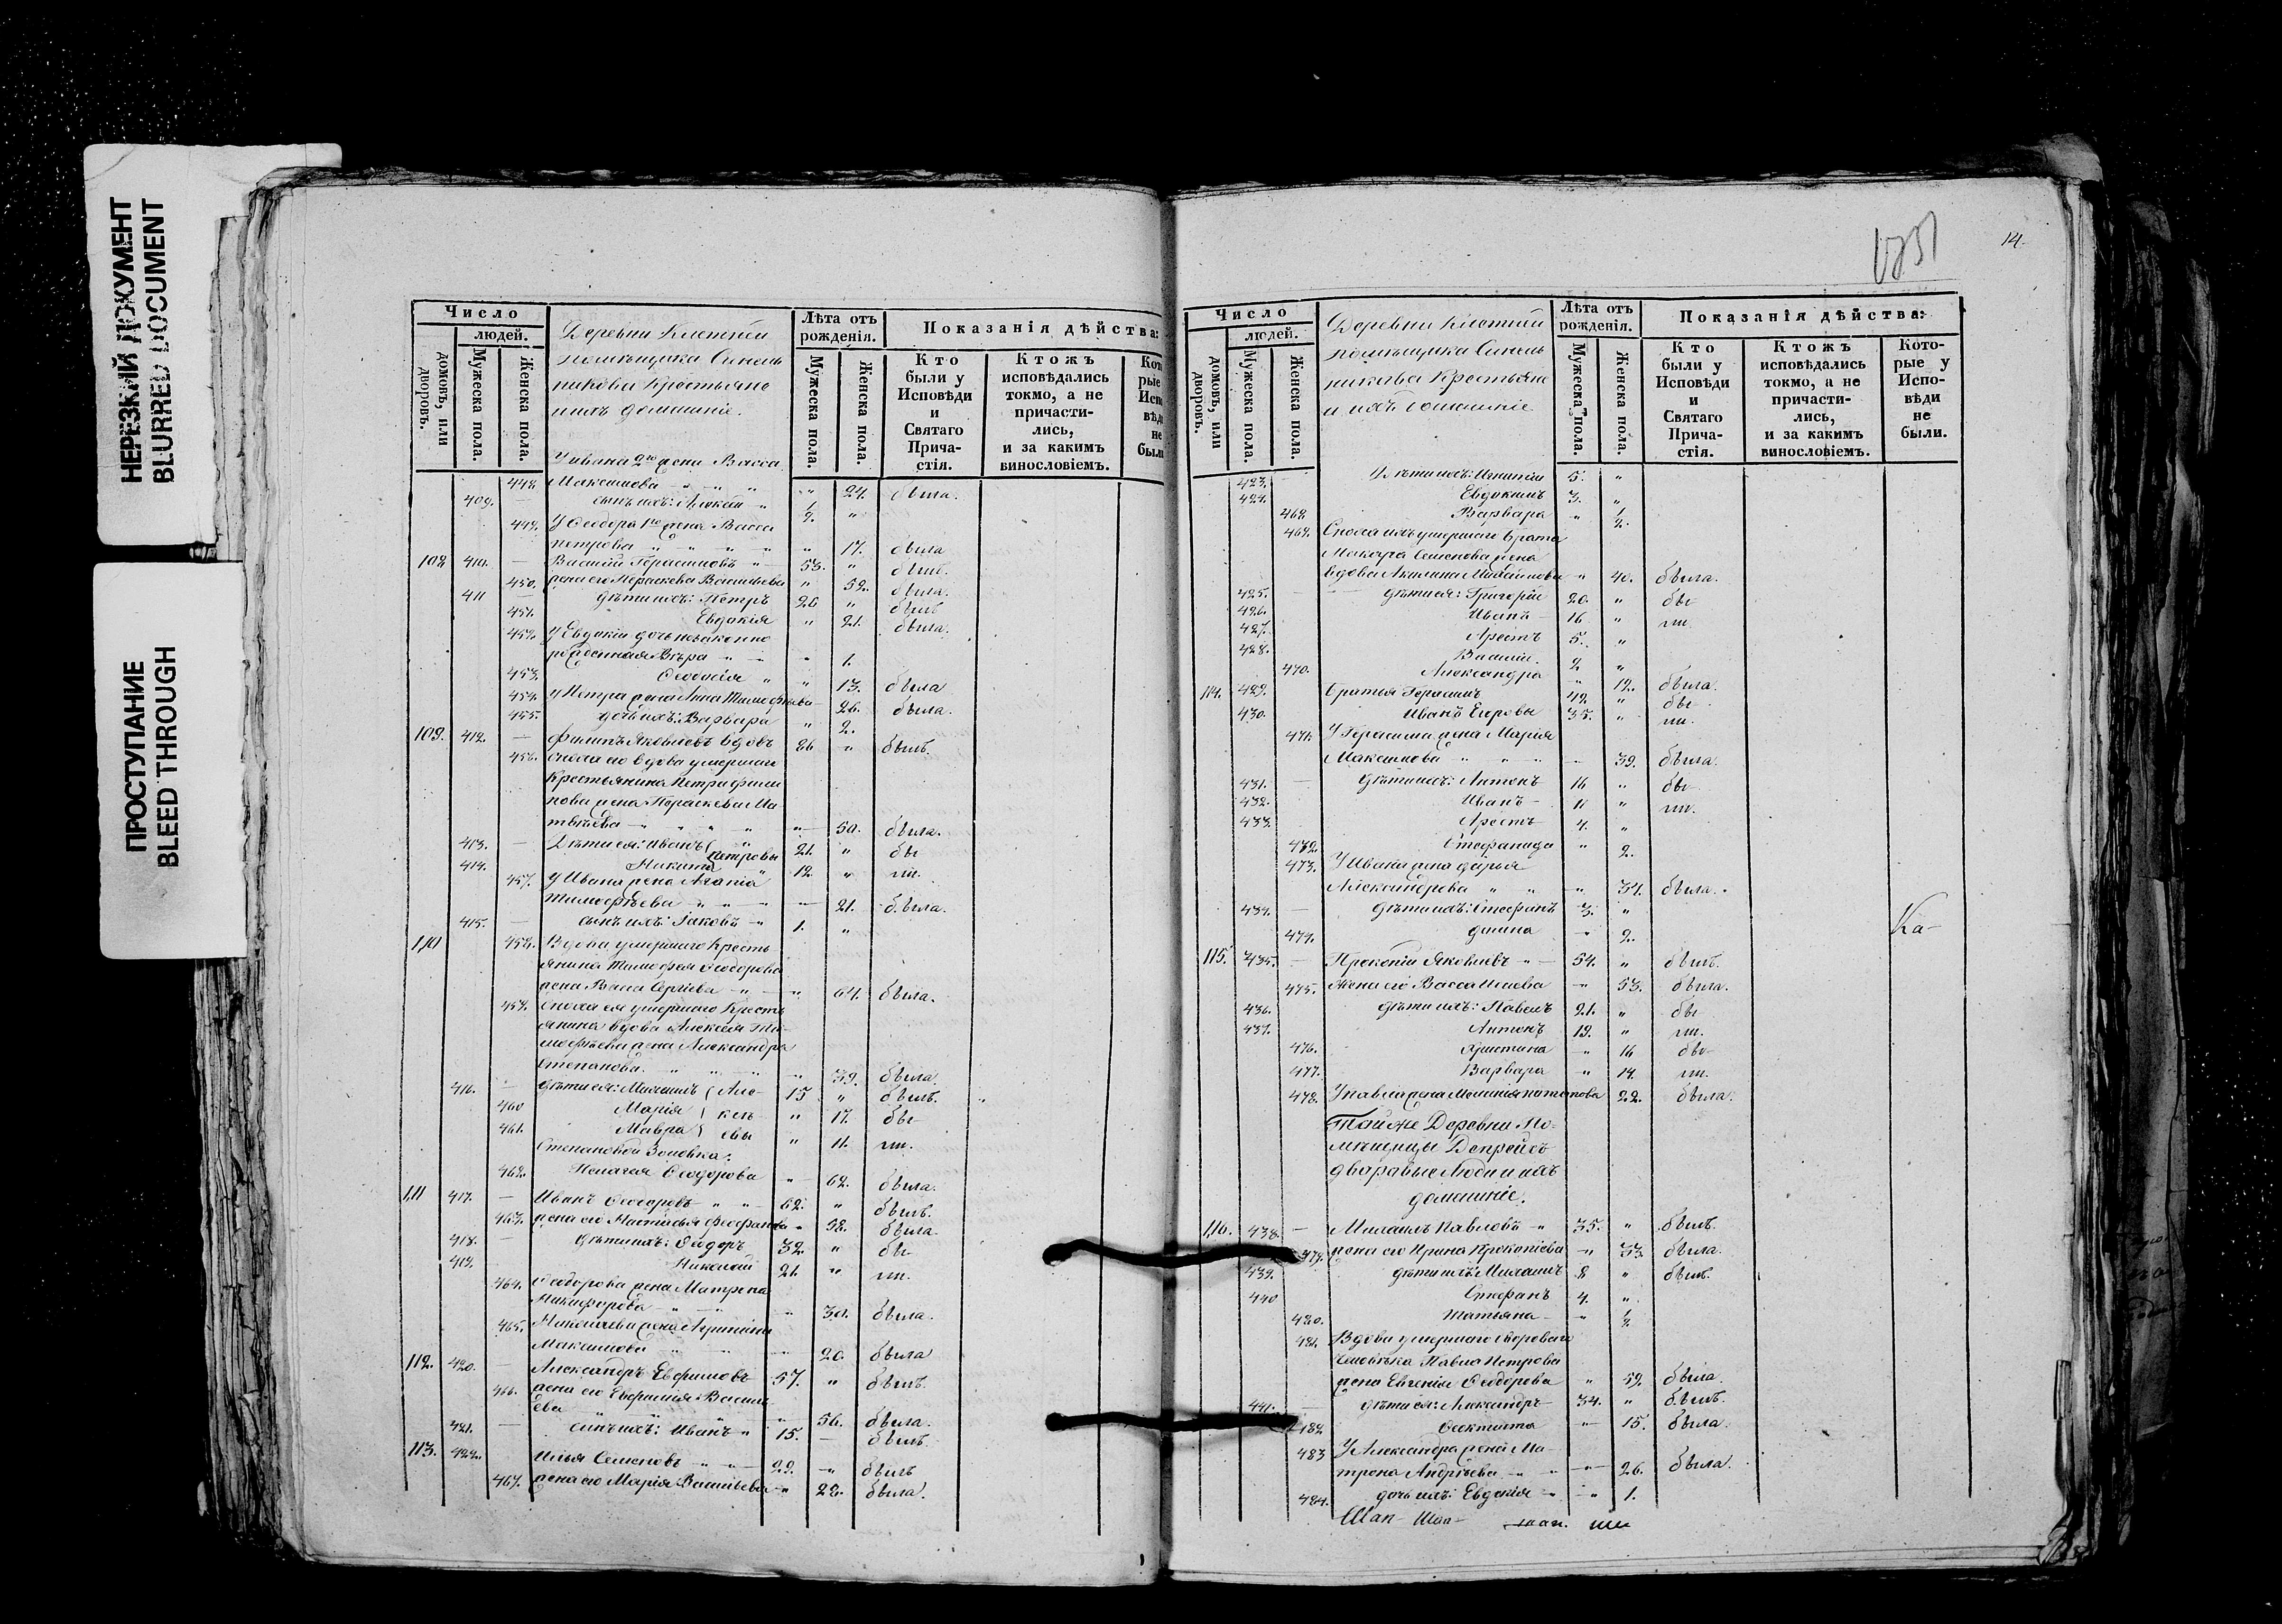 НЕРЕЗКИЙ ДОКУМЕНТ
BLURRED DOCUMENT
ПРОСТУПАНИЕ
BLEED THROUGH
Число
людей.
домовъ, или дворовъ.
Мужеска пола.
Женска пола.
Деревни
помѣщика Синель
никова Крестьяне
ихъ домашніе.
Лѣта отъ рожденія.
Мужеска пола.
Женска пола.
Показанія дѣйства:
Кто были у Исповѣди и Святаго Прича-стія.
Ктожъ исповѣдались токмо, а не причасти-лись, и за какимъ винословіемъ.
448. Максимова 24. была.
409. сынъ ихъ:
449. У Ѳеодора 1го жена Васса
петрова 17. была
108 410. Василій Герасимовъ 53. былъ.
450. жена его Параскева Васильева 52. была.
411 дѣти ихъ: Петръ 20 былъ
451. Евдокія 21. была.
452. У Евдокіи дочь незаконно
рожденная Вѣра 1.
453. Ѳеодосія 13. была
454. У Петра жена Анна Тимофѣева 26. была.
455. дочь ихъ: Варвара 2.
109. 412. Филипъ Яковлевъ вдовъ 86 былъ.
456. сноха его вдова умершаго
Крестьянина Петра Филип
пова жена Параскева Ма
твѣева 50. была.
413. Дѣти ея: Иванъ 21. бы
петровы
414. Никита 12. ли.
457. У Ивана жена Агапія
Тимофѣева 21. была.
415. сынъ ихъ: Іаковъ 1.
110 458. Вдова умершаго Кресть
янина Тимофея Ѳеодорова
жена Васса Сергіева 64. была.
459. сноха ея умершаго Кресть
янина вдова Алексѣя Ти-
мофѣева жена Александра
Степанова. 39. была
416. дѣти ея: Михаилъ Але- 15 былъ.
460 Марія ксѣ- 17. бы
461. Мавра евы 11. ли.
Степановой Золовка:
462. Пелагея Ѳеодорова 62. была.
111 417. Иванъ Ѳеодоровъ 62. былъ.
463. жена его Настасья Феофанова 58. была.
418. дѣти ихъ: Ѳедоръ 32. бы
419. Николай 21. ли.
464. Ѳеодорова жена Матрена
Никифорова 30. была.
465. Николаева жена
Максимова 20. была
112. 420. Александръ Евфимовъ 57. былъ.
466. жена его Евфимія Василь
ева 56. была.
421. сынъ ихъ: Иванъ 15. былъ.
113. 422. Илья Семеновъ 22. былъ
467. жена его Марія Васильева 22. была.
14.
Число
людей.
домовъ, или дворовъ.
Мужеска пола.
Женска пола.
Деревни
помѣщика Синель
никова Крестьяне
и ихъ домашніе
Лѣта отъ рожденія.
Мужеска пола.
Женска пола.
Показанія дѣйства:
Кто были у Исповѣди и Святаго Прича-стія.
Ктожъ исповѣдались токмо, а не причасти-лись, и за какимъ винословіемъ.
Кото-рые у Испо-вѣди не были.
423. Дѣти ихъ: Игнатій 5.
424. Евдокимъ 3.
468 Варвара
469. Сноха ихъ умершаго брата
Семенова жена
вдова Акилина Михайлова 40. была.
425. дѣти ея: Григорій 20. бы
426. Иванъ 16 ли.
427. Арестъ 5.
428. Василій. 2
470. Александра 12. была.
114. 429. братья Герасимъ 42. бы
430. Иванъ Егоровы 35. ли.
471. У Герасима жена Марія
Максимова 39. была.
431. дѣти ихъ: Антонъ 16 бы
432. Иванъ 11 ли.
433. Арестъ 4.
472. Стефанида 2.
473. У Ивана жена дарья
Александрова 34. была.
434. дѣти ихъ: Стефанъ 3.
474. 2.
Ка-
115. 435. Прокопій Яковлевъ 54. былъ.
475. Жена его Васса Исаева 53. была.
436. дѣти ихъ: Павелъ 21. бы
437. Антонъ 19. ли.
476. Христина 16 бы
477. Варвара 14. ли.
478. У павла жена 22. была.
Той же Деревни По-
мѣщицы
дваровые Люди и ихъ
домашніе.
116. 438. Михаилъ Павловъ 35. былъ.
479. жена его Ирина Прокопіева 33. была.
439. дѣти ихъ: Михаилъ 8 былъ.
440 Стефанъ 4.
480. Татьяна
481. Вдова умершаго двороваго
Человѣка Павла Петрова
жена Евгенія Ѳеодорова 59. была.
441. дѣти ея: Александръ 34. былъ.
482 Ѳеоктиста 15. была
483 У Александра жена Ма
трона Андрѣева 26. была.
484. дочь ихъ: Евдокія 1.